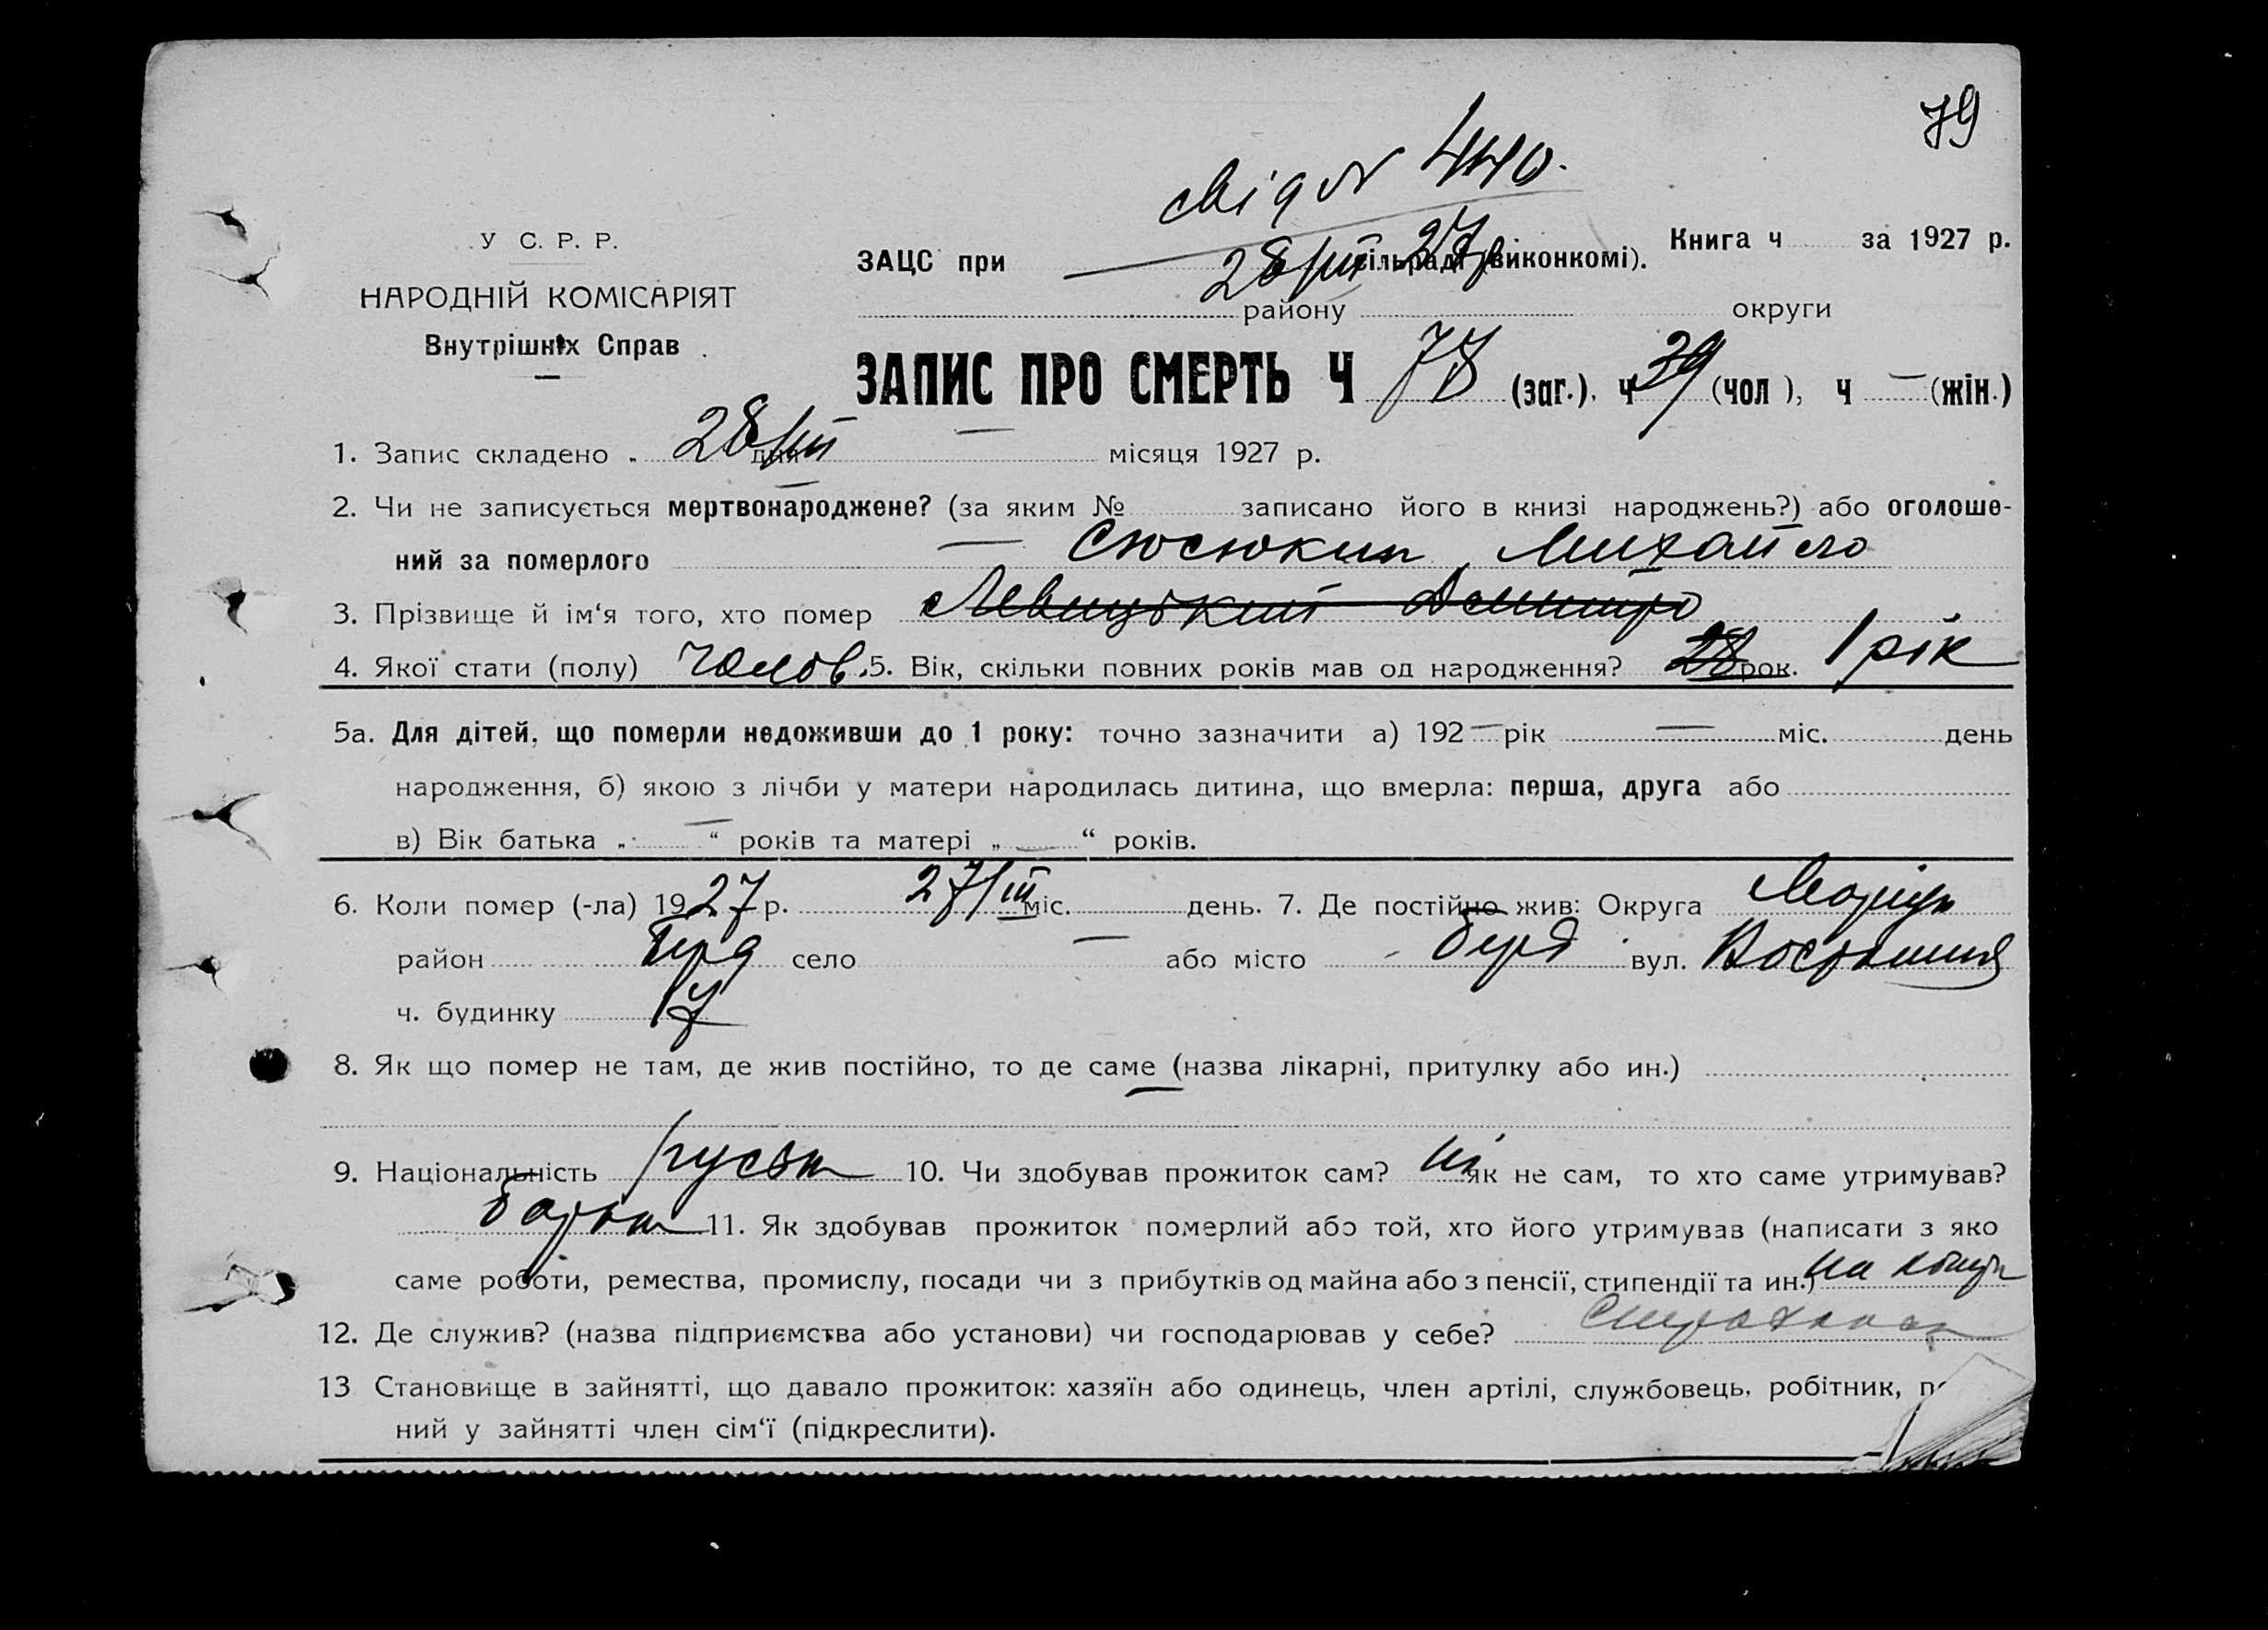 79
свід N 440.
У С. Р. Р.
НАРОДНІЙ КОМІСАРІЯТ
Внутрішніх Справ
ЗАЦС при сільраді (виконкомі). Книга ч за 1927 р.
28/III 27 р
району округи
ЗАПИС ПРО СМЕРТЬ Ч 78 (заг.). ч 39 (чол ), ч — (жін.)
1. Запис складено „ 28/III дня — місяця 1927 р.
2. Чи не записується мертвонароджене? (за яким № записано його в книзі народжень?) або оголоше-
ний за померлого — Сюсюкин Михайло
3. Прізвище й ім‘я того, хто помер Левицький Дмитро
4. Якої стати (полу) чолов. 5. Вік, скільки повних років мав од народження? 28 рок. 1 рік
5а. Для дітей, що померли недоживши до 1 року: точно зазначити а) 192 — рік — міс. день
народження, б) якою з лічби у матери народилась дитина, що вмерла: перша, друга або
в) Вік батька „ — “ років та матері „ — “ років.
6. Коли помер (-ла) 1927 р. 27/III міс. день. 7. Де постійно жив: Округа Маріуп
район Берд село — або місто Берд вул.
ч. будинку 17
8. Як що помер не там, де жив постійно, то де саме (назва лікарні, притулку або ин.)
—
9. Національність руськ 10. Чи здобував прожиток сам? ні як не сам, то хто саме утримував?
батьк 11. Як здобував прожиток померлий або той, хто його утримував (написати з яко
саме роботи, ремества, промислу, посади чи з прибутків од майна або з пенсії, стипендії та ин.) на
12. Де служив? (назва підприємства або установи) чи господарював у себе?
13 Становище в зайнятті, що давало прожиток: хазяїн або одинець, член артілі, службовець, робітник, по
ний у зайнятті член сім‘ї (підкреслити).